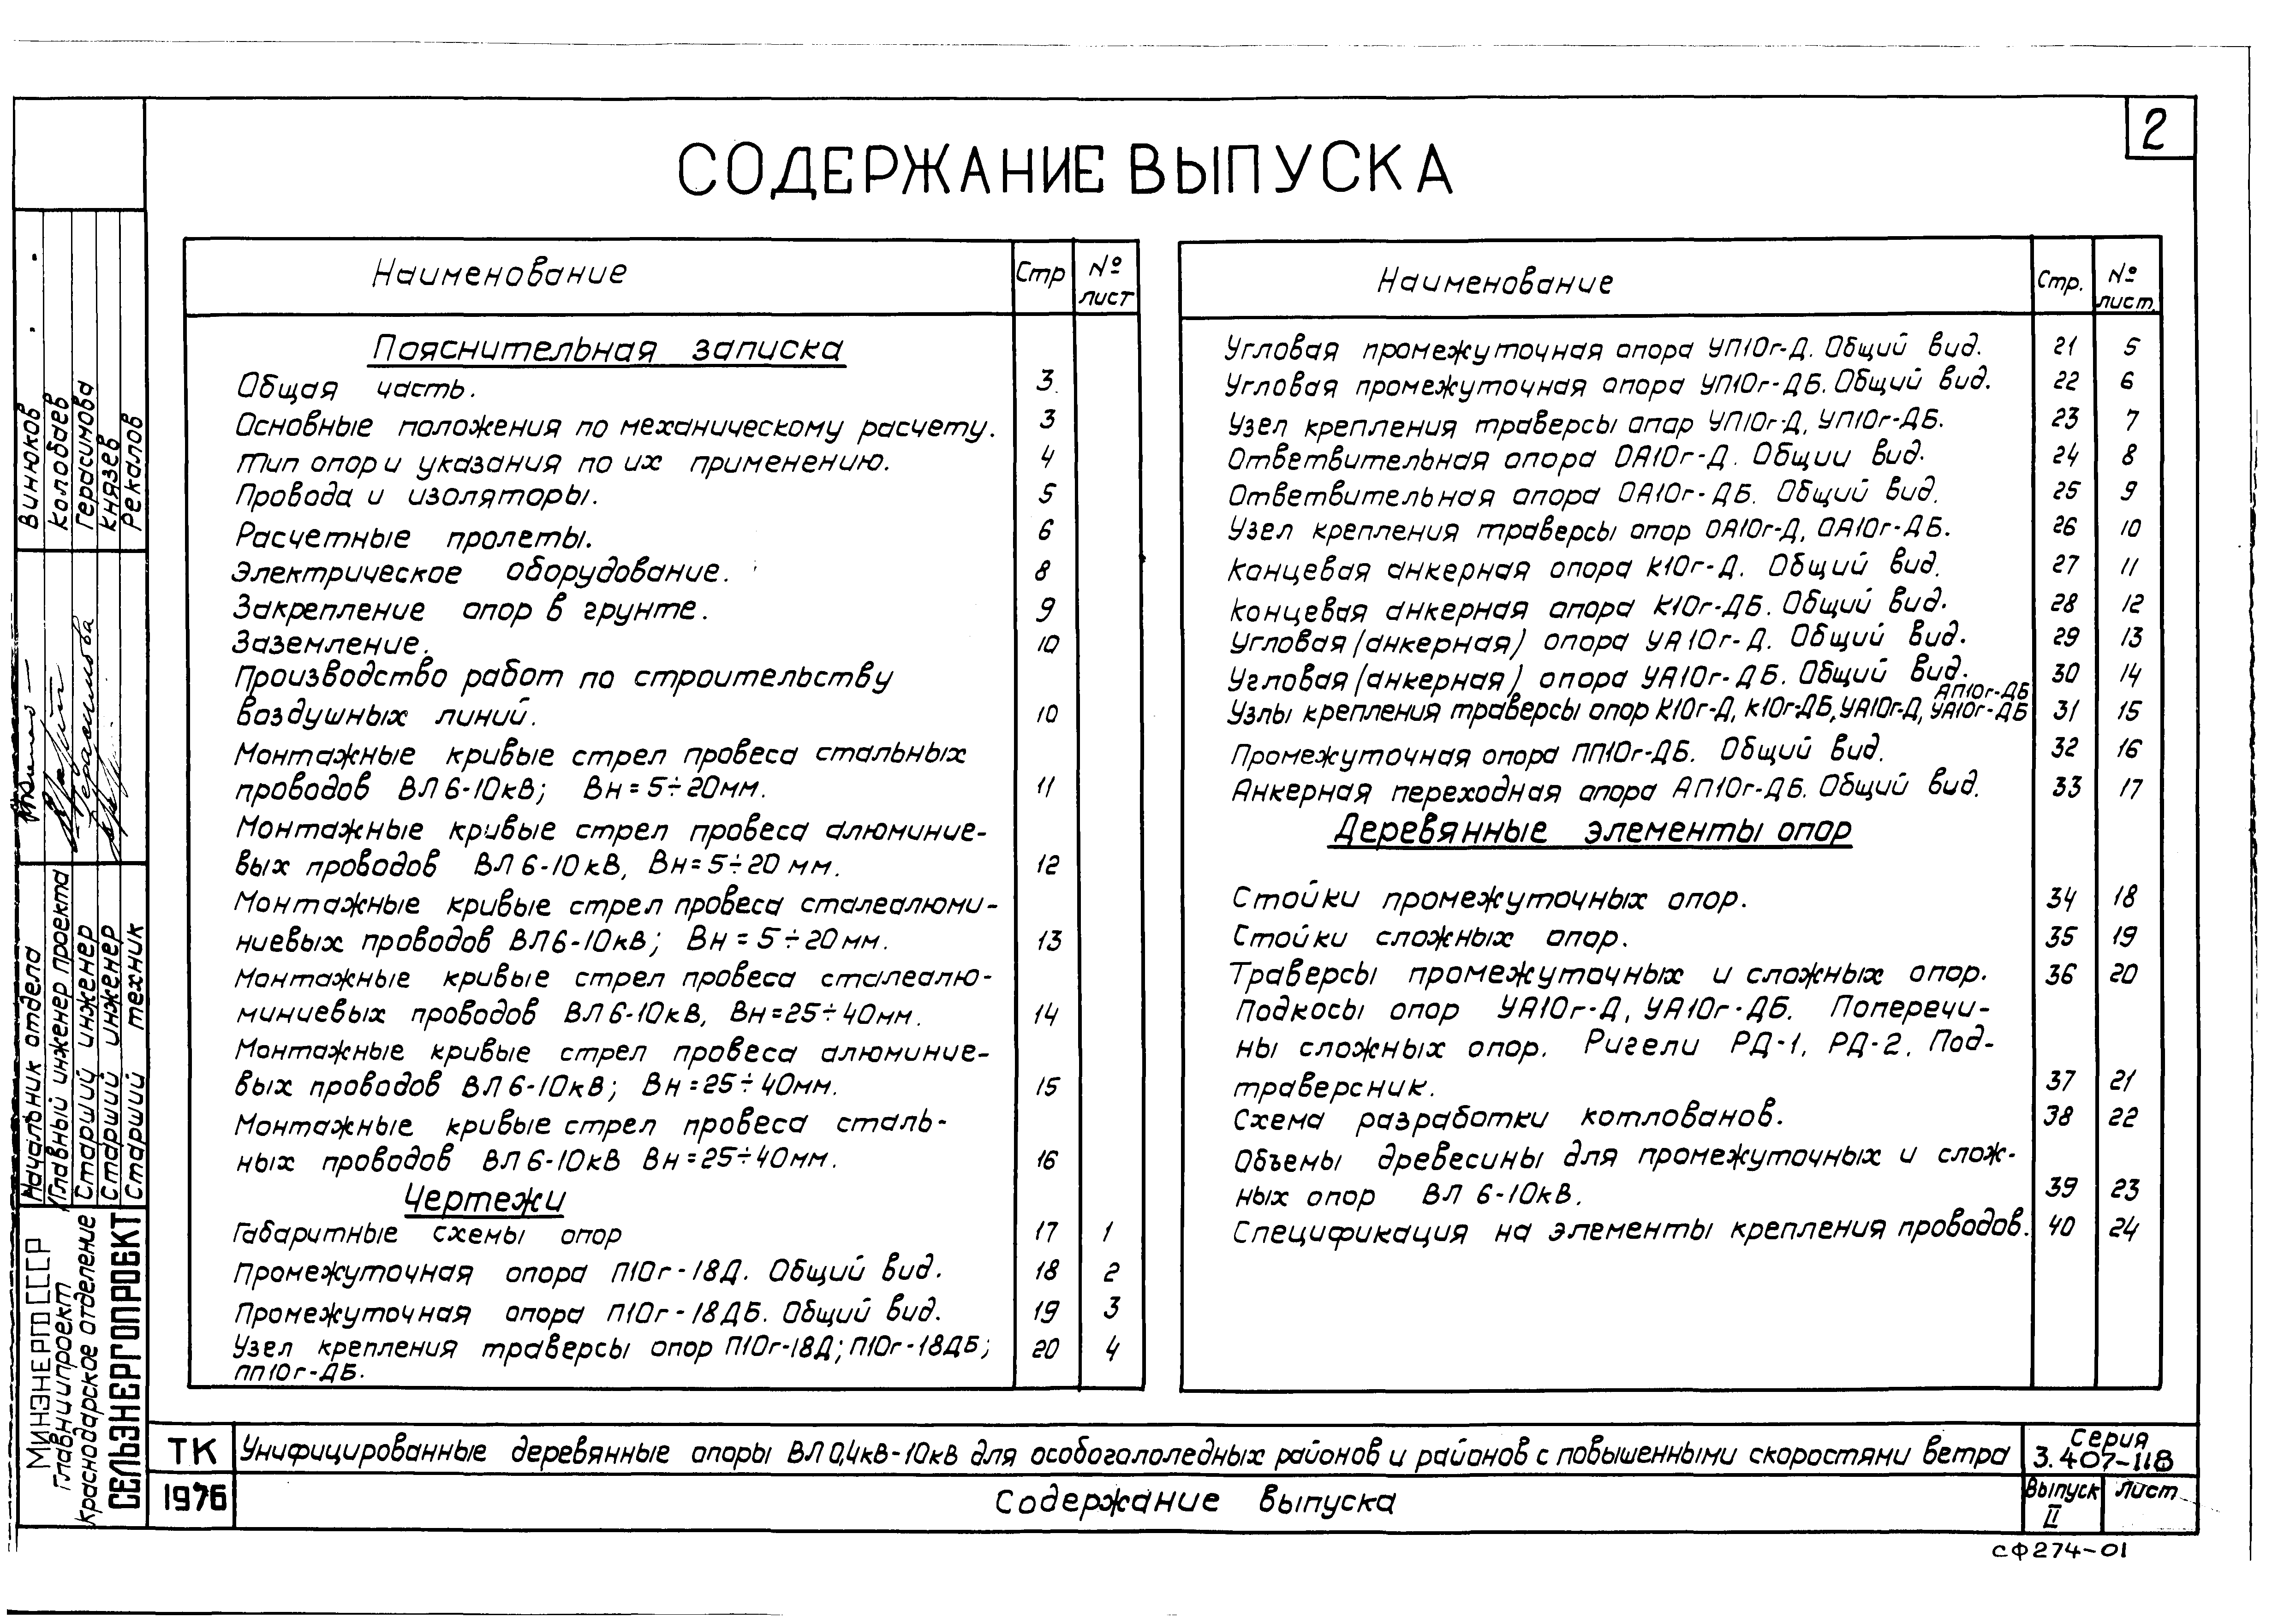 2
СОДЕРЖАНИЕ ВЫПУСКА
Наименование Стр № лист
Пояснительная записка
Общая часть. 3
Основные положения по механическому расчету. 3
Тип опор и указания по их применению. 4
Провода и изоляторы. 5
Расчетные пролеты. 6
Электрическое оборудование. 8
Закрепление опор в грунте. 9
Заземление. 10
Производство работ по строительству
воздушных линий. 10
Монтажные кривые стрел провеса стальных
проводов ВЛ 6-10кВ; Вн=5÷20мм. 11
Монтажные кривые стрел провеса алюминие-
вых проводов ВЛ 6-10кВ, Вн=5÷20 мм. 12
Монтажные кривые стрел провеса сталеалюми-
ниевых проводов ВЛ6-10кВ; Вн=5÷20мм. 13
Монтажные кривые стрел провеса сталеалю-
миниевых проводов ВЛ6-10кВ, Вн=25÷40мм. 14
Монтажные кривые стрел провеса алюминие-
вых проводов ВЛ 6-10кВ; Вн=25÷40мм. 15
Монтажные кривые стрел провеса сталь-
ных проводов ВЛ 6-10кВ Вн=25÷40мм. 16
Чертежи
Габаритные схемы опор 17 1
Промежуточная опора П10г-18Д. Общий вид. 18 2
Промежуточная опора П10г-18ДБ. Общий вид. 19 3
Узел крепления траверсы опор П10г-18Д; П10г-18ДБ; 20 4
ПП10г-ДБ.
Наименование Стр. № лист.
Угловая промежуточная опора УП10г-Д. Общий вид. 21 5
Угловая промежуточная опора УП10г-ДБ. Общий вид. 22 6
Узел крепления траверсы опор УП10г-Д, УП10г-ДБ. 23 7
Ответвительная опора ОА10г-Д. Общий вид. 24 8
Ответвительная опора ОА10г-ДБ. Общий вид. 25 9
Узел крепления траверсы опор ОА10г-Д, ОА10г-ДБ. 26 10
Концевая анкерная опора К10г-Д. Общий вид. 27 11
Концевая анкерная опора К10г-ДБ. Общий вид. 28 12
Угловая (анкерная) опора УА10г-Д. Общий вид. 29 13
Угловая (анкерная) опора УА10г-ДБ. Общий вид. 30 14
АП10г-ДБ
Узлы крепления траверсы опор К10г-Д, К10г-ДБ, УА10г-Д, УА10г-ДБ 31 15
Промежуточная опора ПП10г-ДБ. Общий вид. 32 16
Анкерная переходная опора АП10г-ДБ. Общий вид. 33 17
Деревянные элементы опор
Стойки промежуточных опор. 34 18
Стойки сложных опор. 35 19
Траверсы промежуточных и сложных опор. 36 20
Подкосы опор УА10г-Д, УА10г-ДБ. Поперечи-
ны сложных опор. Ригели РД-1, РД-2. Под-
траверсник. 37 21
Схема разработки котлованов. 38 22
Объемы древесины для промежуточных и слож-
ных опор ВЛ 6-10кВ. 39 23
Спецификация на элементы крепления проводов. 40 24
Начальник отдела Винюков
Главный инженер проекта Колобаев
Старший инженер Герасимова Герасимова
Старший инженер Князев
Старший техник Рекалов
МИНЭНЕРГО СССР
Главниипроект
Краснодарское отделение
СЕЛЬЭНЕРГОПРОЕКТ
ТК Унифицированные деревянные опоры ВЛ 0,4кВ-10кВ для особогололедных районов и районов с повышенными скоростями ветра Серия 3.407-118
1976 Содержание выпуска Выпуск II Лист
СФ274-01